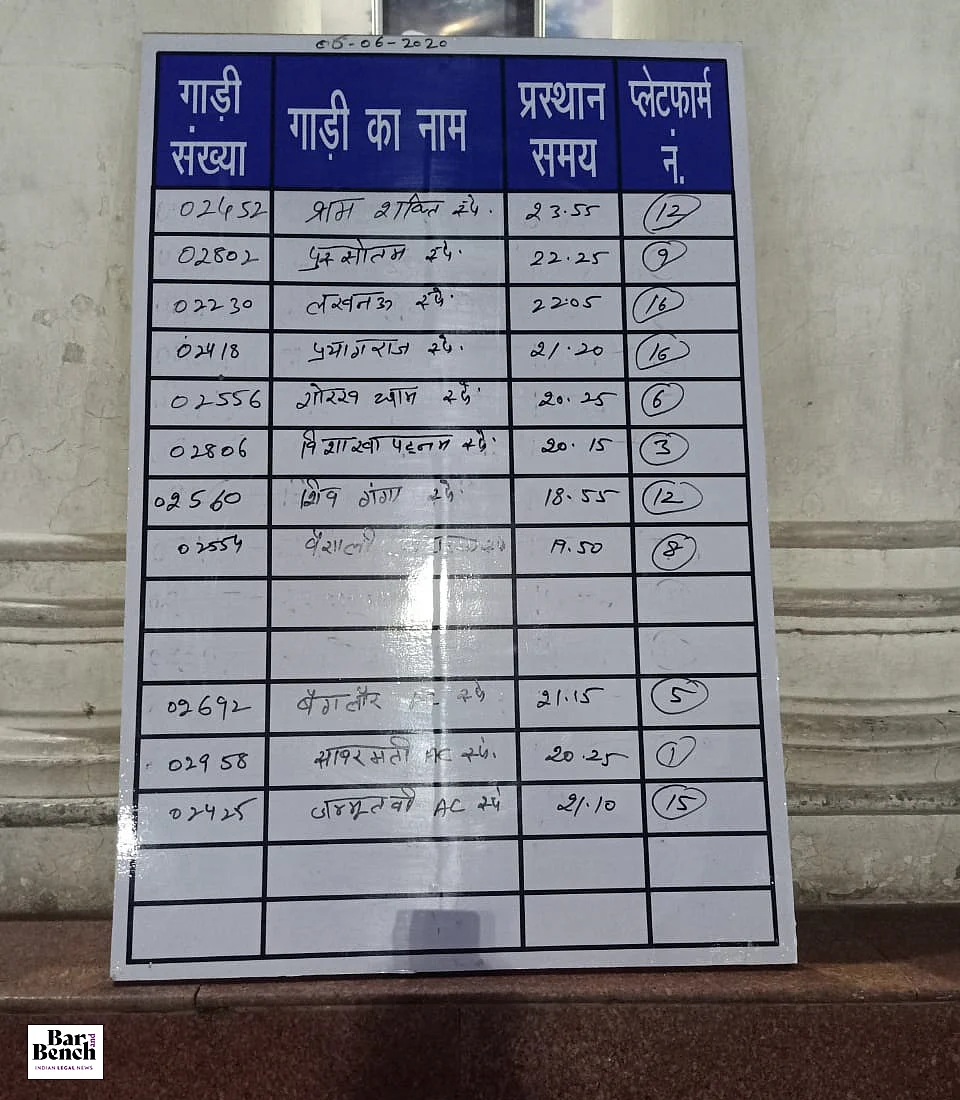 05-06-2020
गाड़ी संख्या गाड़ी का नाम प्रस्थान समय प्लेटफार्म नं.
02452 श्रम शक्ति स्पे. 23.55 12
02802 पुरुसोतम स्पे. 22.25 9
02230 लखनऊ स्पे. 22.05 16
02418 प्रयागराज स्पे. 21.20 16
02556 गोरख धाम स्पे. 20.25 6
02806 विशाखा पट्नम स्पे. 20.15 3
02560 शिव गंगा स्पे. 18.55 12
02554 वैशाली 19.50 8
02692 बैंगलौर स्पे 21.15 5
02958 साबरमती AC स्पे. 20.25 1
02425 जम्मूतवी AC स्पे 21.10 15
Bar and Bench
INDIAN LEGAL NEWS